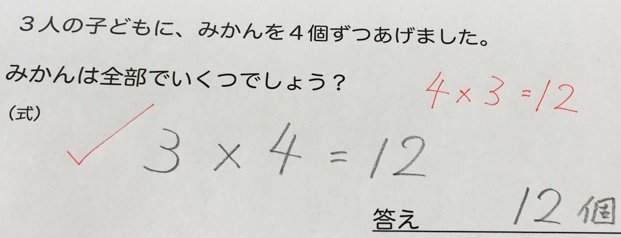 ３人の子どもに、みかんを４個ずつあげました。
みかんは全部でいくつでしょう？
4×3=12
(式)
3×4=12
答え 12個